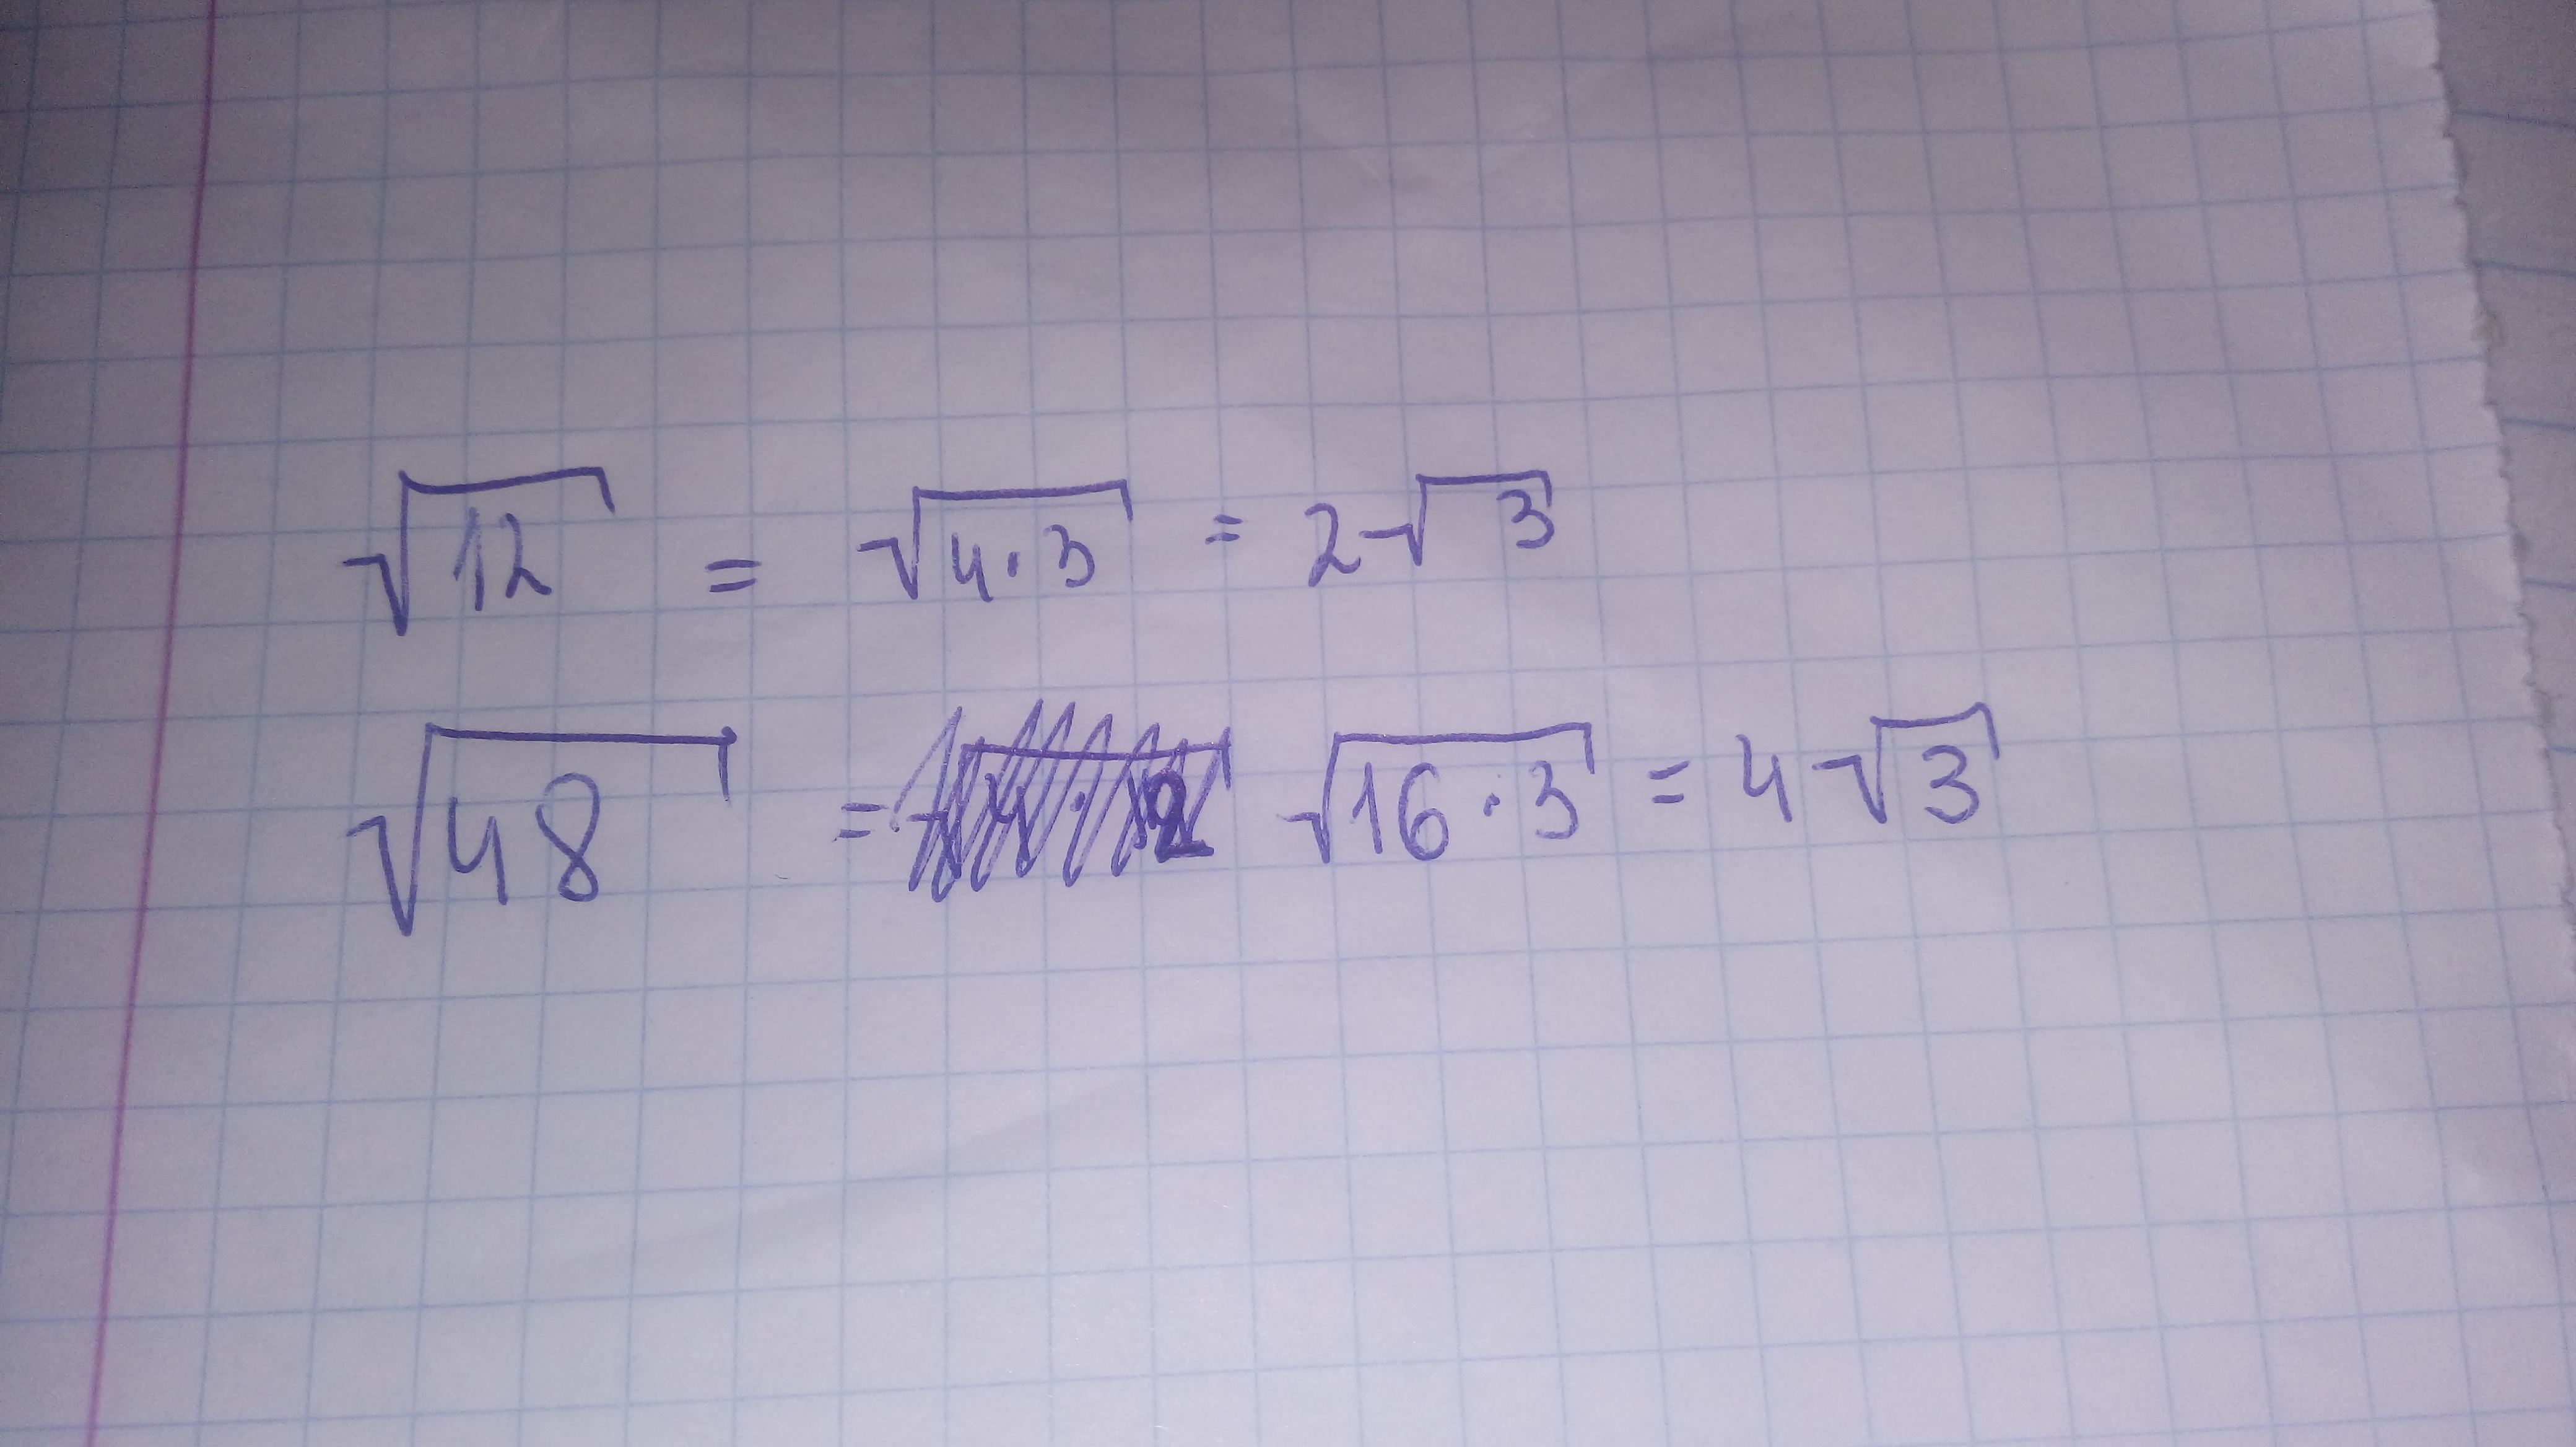 √12 = √4·3 = 2√3
√48 = √16·3 = 4√3